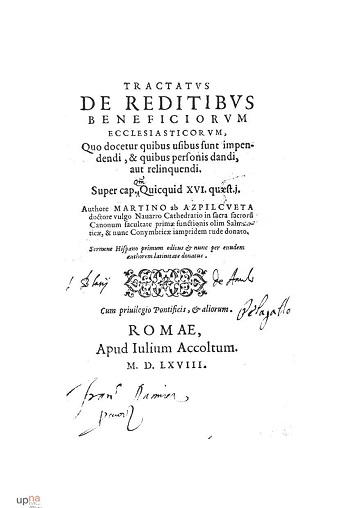 TRACTATVS
DE REDITIBVS
BENEFICIORVM
ECCLESIASTICORVM,
Quo docetur quibus usibus sunt impen-
dendi, & quibus personis dandi,
aut relinquendi.
Super cap. Quicquid XVI. quæst. j.
Authore MARTINO ab AZPILCVETA
doctore vulgo Nauarro Cathedratio in sacra sacrorũ
Canonum facultate primæ functionis olim Salm
ticæ, & nunc Conymbricæ iampridem rude donato,
Sermone Hispano primum editus & nunc per eundem
authorem latinitate donatus.
Cum priuilegio Pontificis, & aliorum.
ROMAE,
Apud Iulium Accoltum.
M. D. LXVIII.
upna